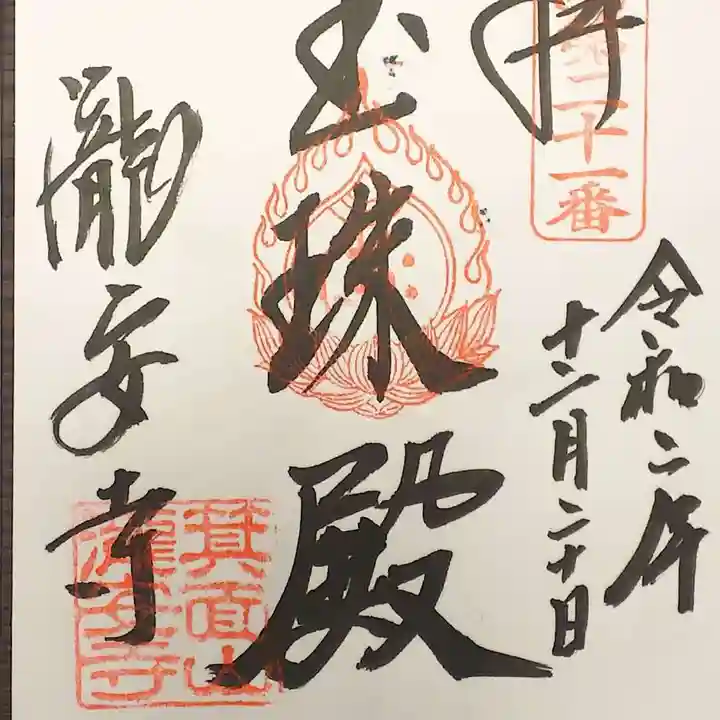 拝
二十一番
令和二年
十二月二十日
玉珠殿
瀧安寺
箕面山
瀧安寺